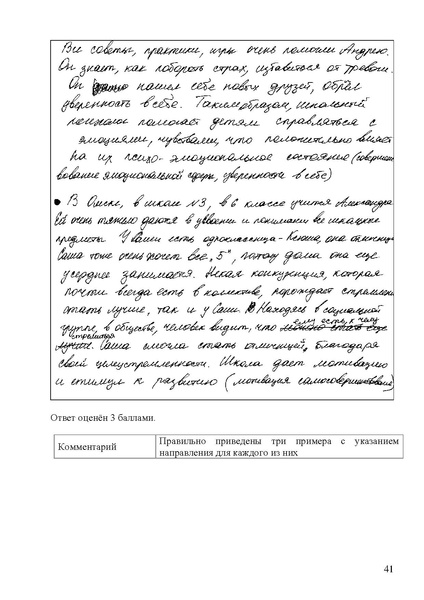 Все советы, практики, игры очень помогли Андрею.
Он знает, как побороть страх, избавиться от тревоги.
Он нашел себе новых друзей, обрел
уверенность в себе. Таким образом, школьный
психолог помогает детям справляться с
эмоциями, чувствами, что положительно влияет
на их психо-эмоциональное состояние (совершенст
вование эмоциональной сферы, уверенности в себе)
• В Омске, в школе №3, в 6 классе учится Александра
Ей очень тяжело даются в усвоении и понимании все школьные
предметы. У Саши есть одноклассница - Ксюша, она отличница
Саша тоже очень хочет все "5", потому дома она еще
усерднее занимается. Некая конкуренция, которая
почти всегда есть в коллективе, порождает стремление
стать лучше, так и у Саши. Находясь в социальной
группе, в обществе, человек видит, что ему есть, к чему
стремиться
Саша смогла стать отличницей, благодаря
своей целеустремленности. Школа дает мотивацию
и стимул к развитию (мотивация самосовершенствования)
Ответ оценён 3 баллами.
Комментарий
Правильно приведены три примера с указанием
направления для каждого из них
41